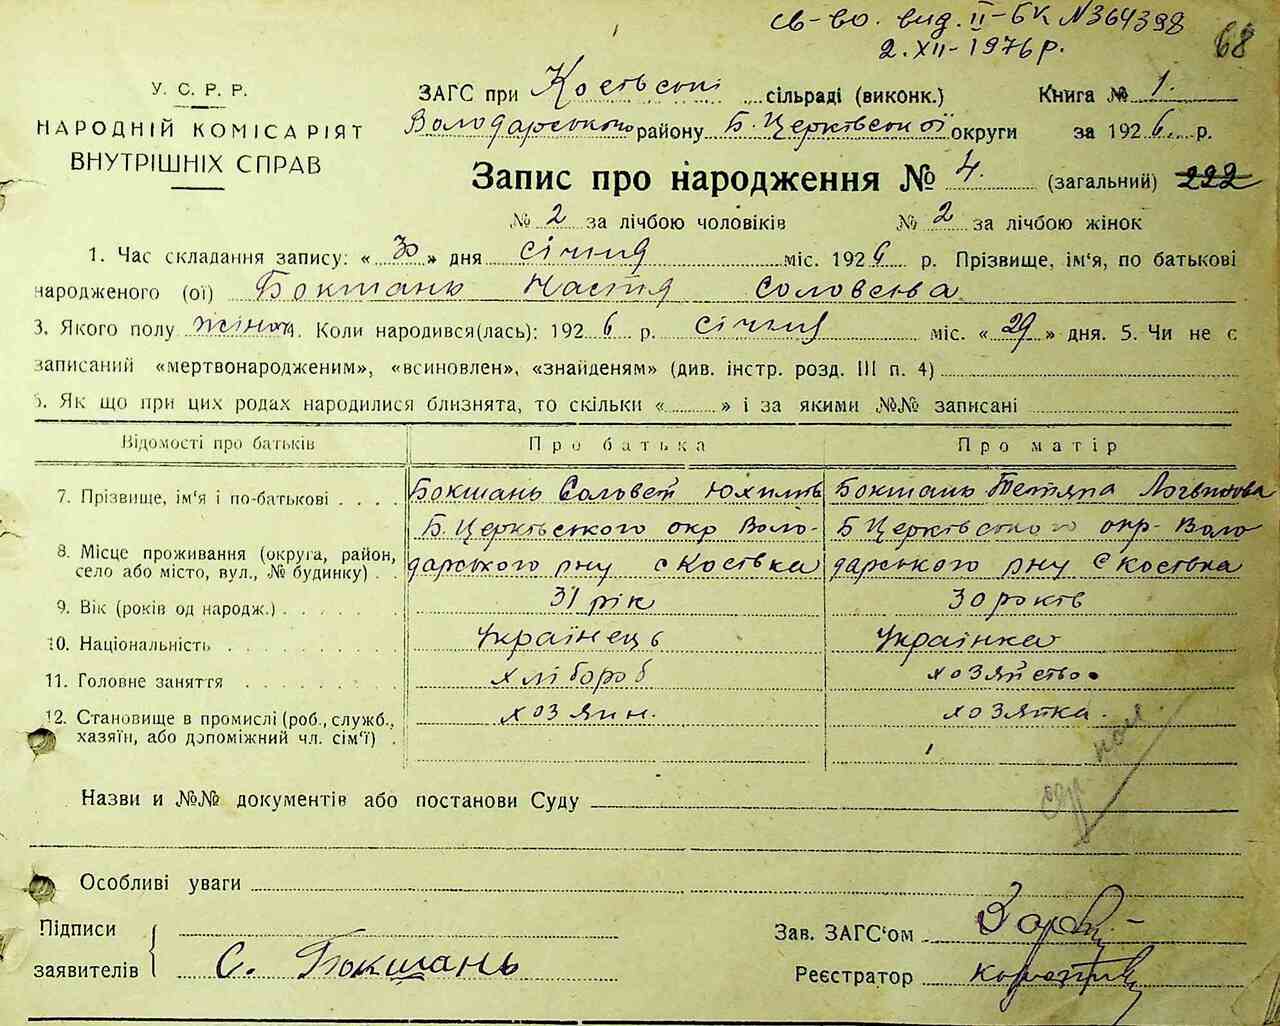 св-во. вид. II-БК №364398
2.XII-1976 р.
68
У. С. Р. Р.
НАРОДНІЙ КОМІСАРІЯТ
ВНУТРІШНІХ СПРАВ
ЗАГС при Костьські сільраді (виконк.) Книга № 1.
Володарського району Б. Церківської округи за 1926. р.
Запис про народження № 4. (загальний) 222
№ 2 за лічбою чоловіків № 2 за лічбою жінок
1. Час складання запису: «30» дня січння міс. 1926 р. Прізвище, ім‘я, по батькові
народженого (ої) Бокшань Настя Соловєєва
3. Якого полу жіноч. Коли народився(лась): 1926 р. січння міс. «29» дня. 5. Чи не є
записаний «мертвонародженим», «всиновлен», «знайденям» (див. інстр. розд. III п. 4)
6. Як що при цих родах народилися близнята, то скільки « » і за якими №№ записані
Відомості про батьків Про батька Про матір
7. Прізвище, ім‘я і по-батькові . . . . Бокшань Соловей Юхимів Бокшань Тетяна Логвинова
8. Місце проживання (округа, район, село або місто, вул., № будинку) . . Б. Церківського окр Володарського рну с Костівка Б Церківського окр-Володарського рну С Костівка
9. Вік (років од народж.) . . . . . . 31 рік 30 років
10. Національність . . . . . . . . . Українець Українка
11. Головне заняття . . . . . . . . хлібороб хозяйство.
12. Становище в промислі (роб., служб., хазяїн, або допоміжний чл. сім‘ї) . хозяин. хозяйка.
Назви и №№ документів або постанови Суду
Особливі уваги
Підписи
заявителів С. Бокшань
Зав. ЗАГС‘ом
Реєстратор